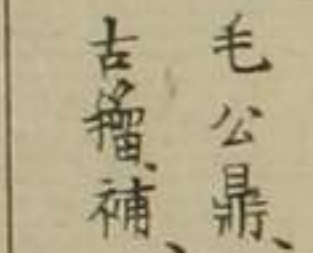 毛公鼎、
古籀、補、